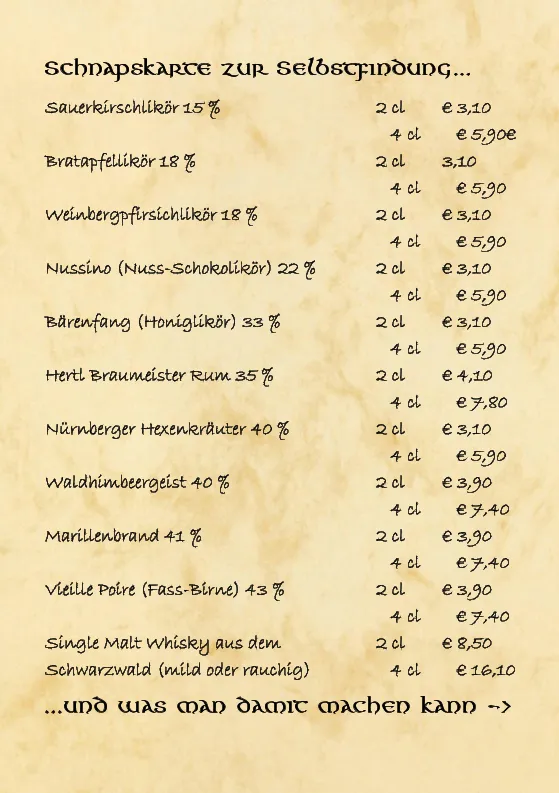 Schnapskarte zur Selbstfindung...
Sauerkirschlikör 15 % 2 cl € 3,10
4 cl € 5,90€
Bratapfellikör 18 % 2 cl 3,10
4 cl € 5,90
Weinbergpfirsichlikör 18 % 2 cl € 3,10
4 cl € 5,90
Nussino (Nuss-Schokolikör) 22 % 2 cl € 3,10
4 cl € 5,90
Bärenfang (Honiglikör) 33 % 2 cl € 3,10
4 cl € 5,90
Hertl Braumeister Rum 35 % 2 cl € 4,10
4 cl € 7,80
Nürnberger Hexenkräuter 40 % 2 cl € 3,10
4 cl € 5,90
Waldhimbeergeist 40 % 2 cl € 3,90
4 cl € 7,40
Marillenbrand 41 % 2 cl € 3,90
4 cl € 7,40
Vieille Poire (Fass-Birne) 43 % 2 cl € 3,90
4 cl € 7,40
Single Malt Whisky aus dem 2 cl € 8,50
Schwarzwald (mild oder rauchig) 4 cl € 16,10
...und was man damit machen kann -->